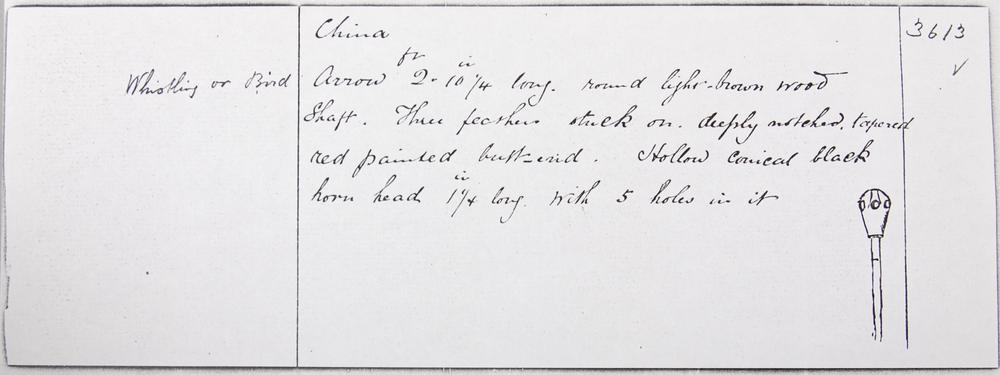 China
3613
Whistling or Bird
Arrow 2 ft - 10 1/4 in long. round light-brown wood
Shaft. Three feathers stuck on. deeply notched, tapered
red painted butt-end. Hollow conical black
horn head 1 1/4 in long. with 5 holes in it